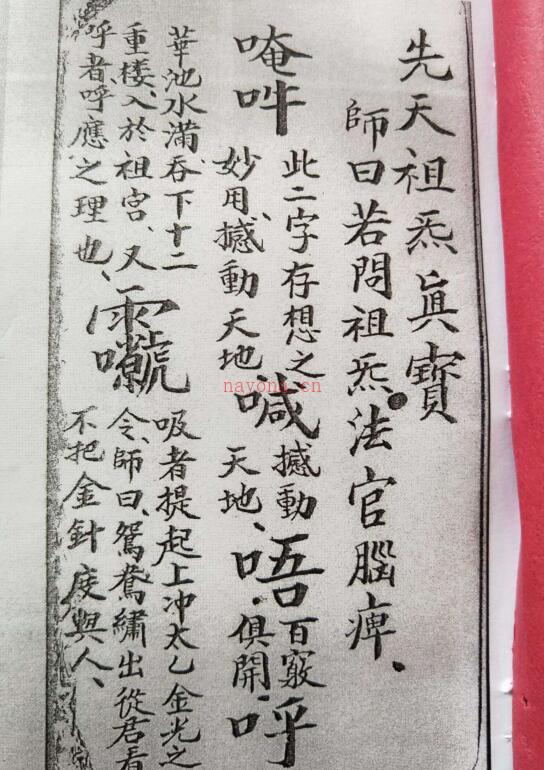 先天祖炁眞寶
師曰若問祖炁法官腦痺、
唵吽
此二字存想之
妙用、撼動天地
喊
撼動
天地、
唔
百竅
俱開
呼
華池水滿、吞下十二
重楼、入於祖宮、又
呼者、呼應之理也、
吸者提起上冲太乙金光之
令、師曰、鴛鴦繡出從君看
不把金針度與人、
nayona.cn